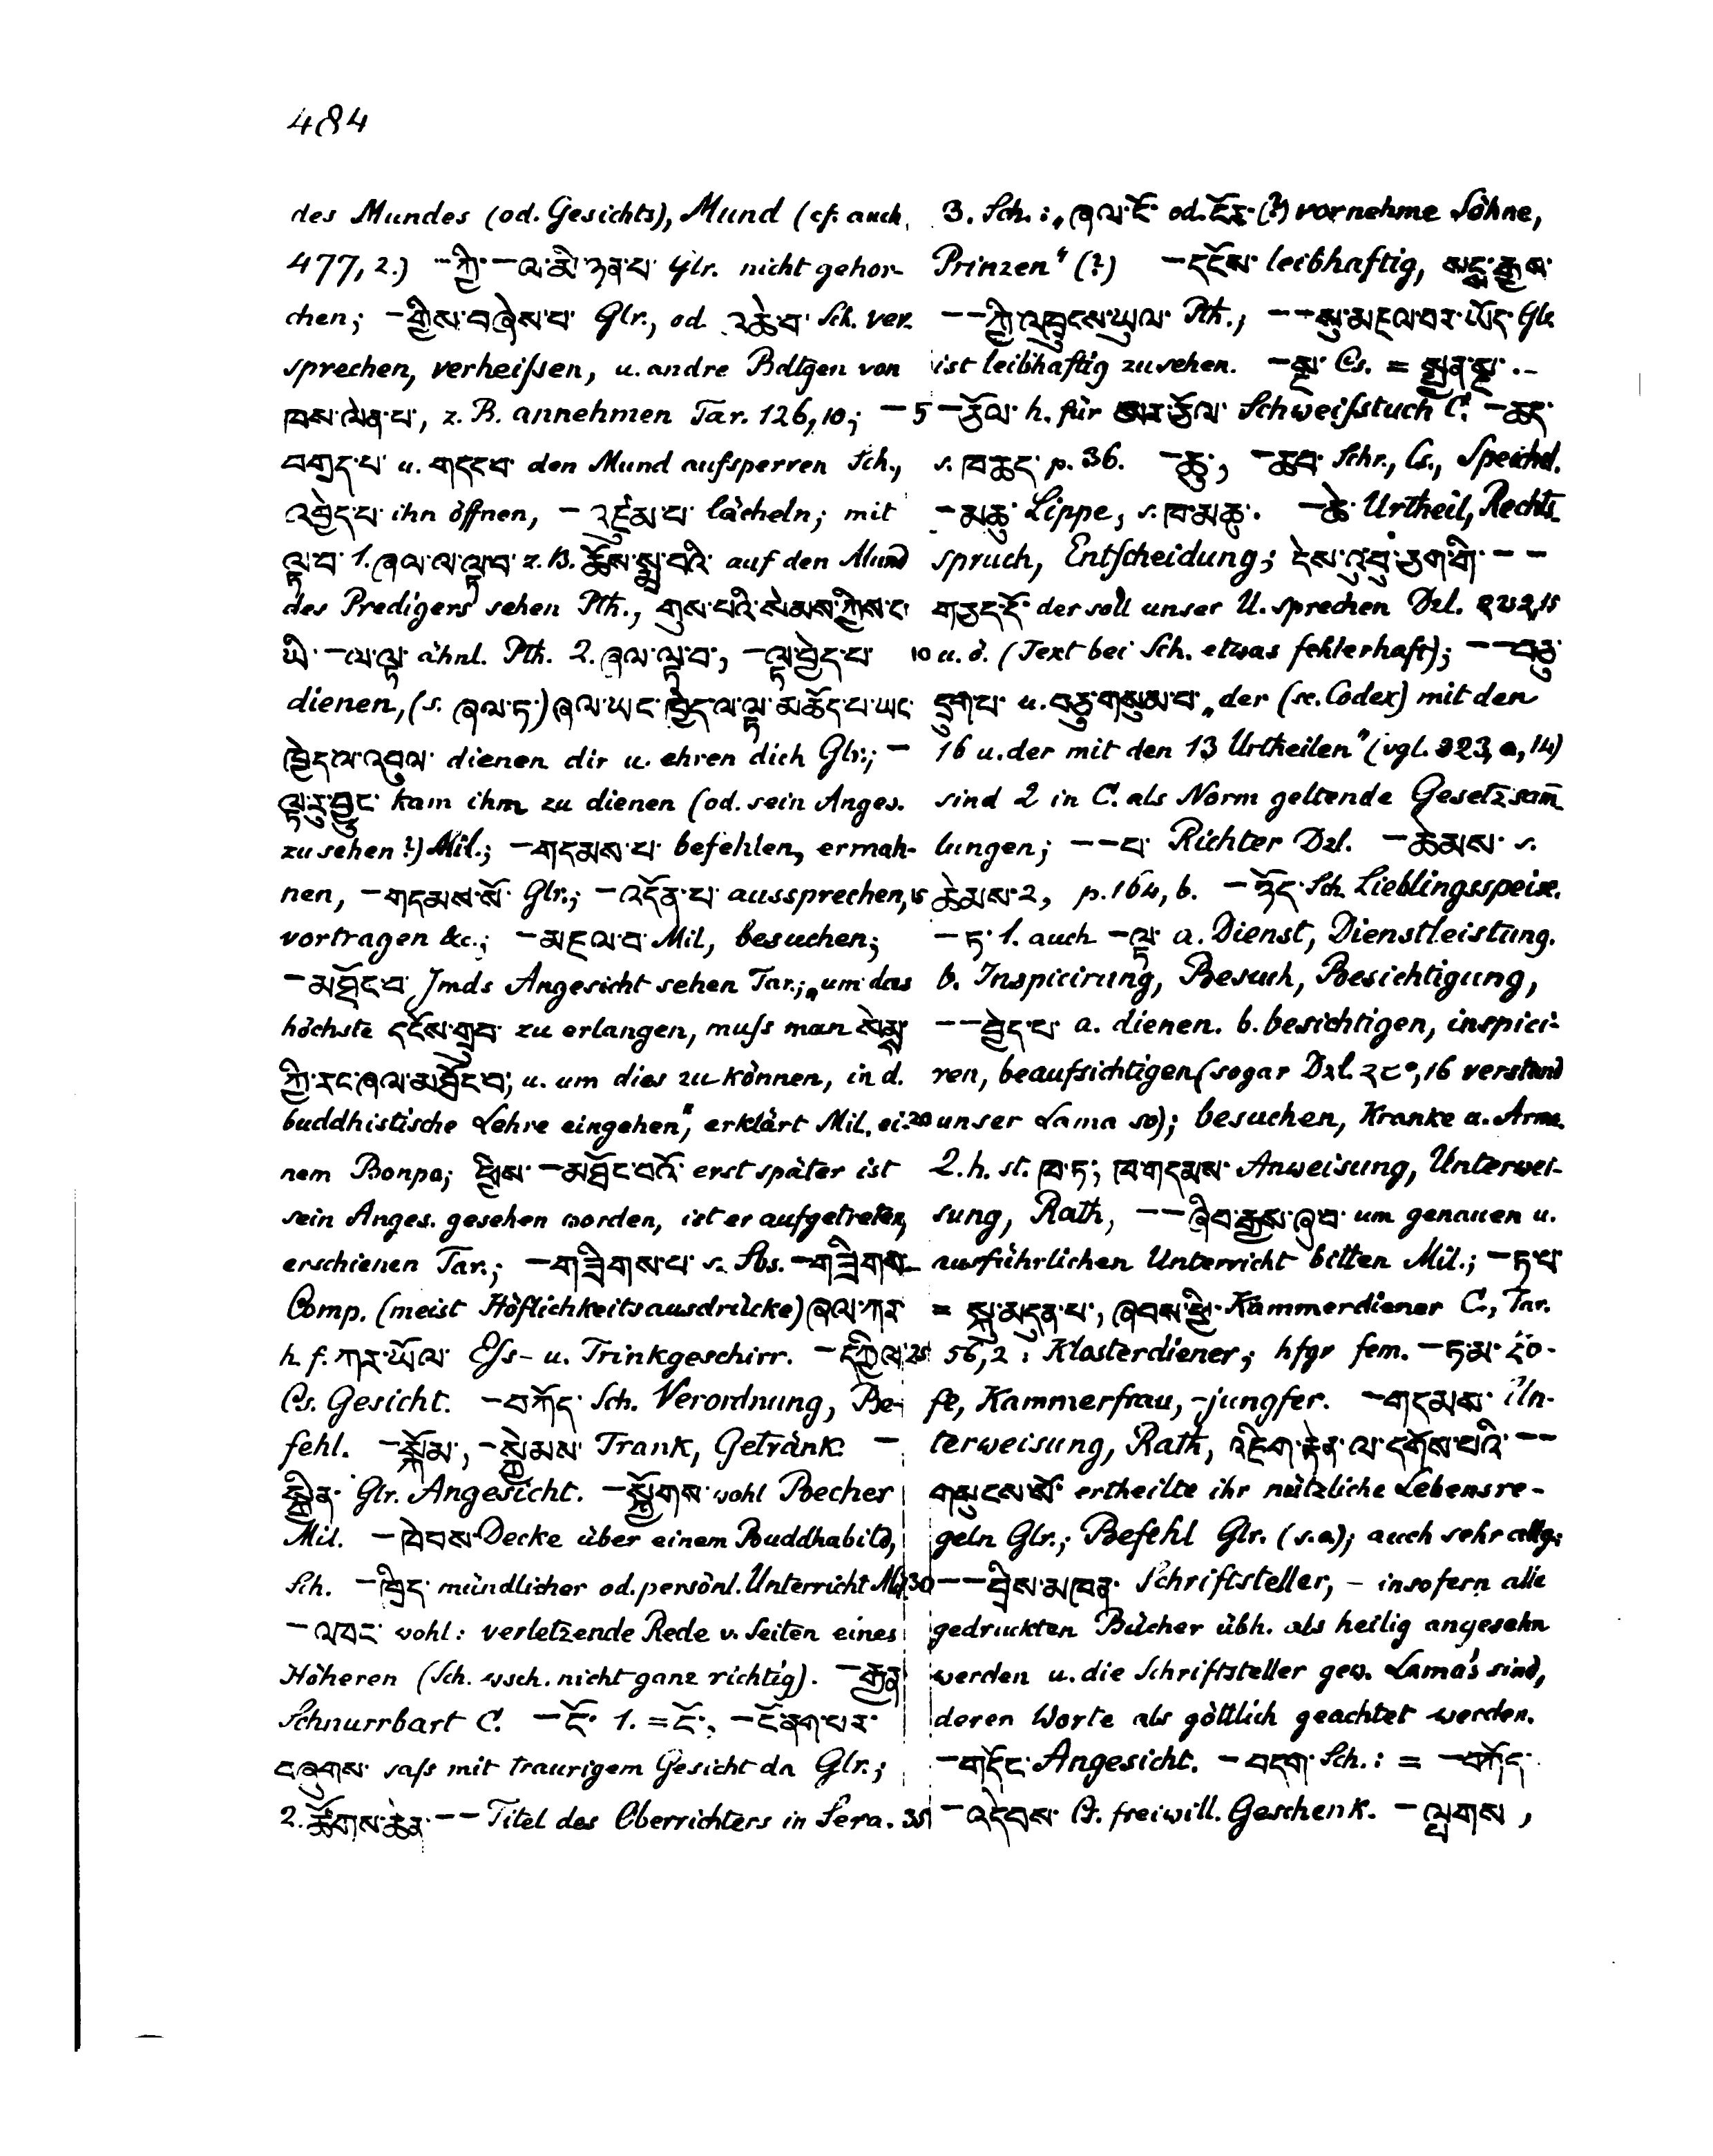 484
des Mundes (od. Gesichts), Mund (cf. auch
477, 2.) --ཀྱི་ —ལ་མི་ཉན་པ་ Glr. nicht gehor-
chen; —གྱིས་བཞེས་པ་ Glr., od. འཆེ་བ་ Sch. ver-
sprechen, verheißen, u. andre Bdtgen von
ཁས་ལེན་པ་, z. B. annehmen Tar. 126, 10; —
བགྲད་པ་ u. གདང་བ་ den Mund aufsperren Sch.,
འབྱེད་པ་ ihn öffnen, — འཛུམ་པ་ lächeln; mit
ལྟ་བ་ 1. ཞལ་ལ་ལྟ་བ་ z. B. ཆོས་སྨྲ་བའི་ auf den Mund
des Predigers sehen Pth., གུས་པའི་སེམས་ཀྱིས་ང་
ཡི་ —ལ་ལྟ་ ähnl. Pth. 2. ཞལ་ལྟ་བ་, —ལྟ་བྱེད་པ་
dienen, (s. ཞལ་ཏ་) ཞལ་ཡང་ཁྱེད་ལ་ལྟ་མཆོད་པ་ཡང་
ཁྱེད་ལ་འབུལ་ dienen dir u. ehren dich Glr.; —
ལྟ་རུ་བྱུང་ kam ihm zu dienen (od. sein Anges.
zu sehen?) Mil.; —གདམས་པ་ befehlen, ermah-
nen, —གདམས་སོ་ Glr.; —འདོན་པ་ aussprechen,
vortragen &c.; —མཇལ་བ་ Mil, besuchen;
—མཐོང་བ་ Jmds Angesicht sehen Tar.; „um das
höchste དངོས་གྲུབ་ zu erlangen, muß man
ཀྱི་རང་ཞལ་མཐོང་བ་, u. um dies zu können, in d.
buddhistische Lehre eingehen", erklärt Mil. ei-
nem Bonpo; ཕྱིས་ —མཐོང་བའོ་ erst später ist
sein Anges. gesehen worden, ist er aufgetreten,
erschienen Tar.; —གཟིགས་པ་ s. Sbs. —གཟིགས་
Comp. (meist Höflichkeitsausdrücke) ཞལ་ཀར་
h. f. ཀར་ཡོལ་ Eß- u. Trinkgeschirr. —དཀྱིལ་
Cs. Gesicht. —བཀོད་ Sch. Verordnung, Be-
fehl. —སྐོམ་, —སྐྱེམས་ Trank, Getränk. —
སྐྱིན་ Glr. Angesicht. —སྐྱོགས་ wohl Becher
Mil. —ཁེབས་ Decke über einem Buddhabild,
Sch. —ཁྲིད་ mündlicher od. persönl. Unterricht Mil.
—འབང་ wohl: verletzende Rede v. Seiten eines
Höheren (Sch. wsch. nicht ganz richtig). —རྒྱན་
Schnurrbart C. —ངོ་ 1. = ངོ་, —ངོ་ནག་པར་
བཞུགས་ saß mit traurigem Gesicht da Glr.;
2. ཚོགས་ཆེན་ —— Titel des Oberrichters in Sera. 35
3. Sch.: „ཞལ་ངོ་ od. ངོར་ (?) vornehme Söhne,
Prinzen" (?) —དངོས་ leibhaftig, སངྒྱས་
——ཀྱི་འཁྲུངས་ཡུལ་ Pth.; ——སུ་མཇལ་བར་ཡོད་ Glr.
ist leibhaftig zu sehen. —སྔ་ Cs. = སྨྱན་སྔ་. —
5 —ཅོལ་ h. für ཁར་ཅོལ་ Schweißstuch C. —ཆད་
s. ཁ་ཆད་ p. 36. —ཆུ་, —ཆབ་ Schr., Cs., Speichel.
—མཆུ་ Lippe, s. ཁ་མཆུ་. —ཆེ་ Urtheil, Rechts-
spruch, Entscheidung; དེས་འུ་བུ་ཅག་གི་ ——
གཅད་དོ་ der soll unser U. sprechen Dzl. ༢༠༢, 15
10 u. ö. (Text bei Sch. etwas fehlerhaft); ——བཅུ་
དྲུག་པ་ u. བཅུ་གསུམ་པ་ „der (sc. Codex) mit den
16 u. der mit den 13 Urtheilen" (vgl. 323, a, 14)
sind 2 in C. als Norm geltende Gesetzsam̄-
lungen; ——པ་ Richter Dzl. —ཆེམས་ s.
15 ཆེམས་ 2, p. 164, b. —ཉོད་ Sch. Lieblingsspeise.
—ཏ་ 1. auch —ལྟ་ a. Dienst, Dienstleistung.
b. Inspicirung, Besuch, Besichtigung,
——བྱེད་པ་ a. dienen. b. besichtigen, inspici-
ren, beaufsichtigen (sogar Dzl. ༢༨༠, 16 verstand
20 unser Lama so); besuchen, Kranke u. Arme.
2. h. st. ཁ་ཏ་; ཁ་གདམས་ Anweisung, Unterwei-
sung, Rath, ——ཞིབ་རྒྱས་ཞུ་བ་ um genauen u.
ausführlichen Unterricht bitten Mil.; —ཏ་པ་
= སྐུ་མདུན་པ་, ཞབས་ཕྱི་ Kammerdiener C., Tar.
25 56, 2: Klosterdiener; hfgr fem. —ཏ་མ་ Zo-
fe, Kammerfrau, -jungfer. —གདམས་ Un-
terweisung, Rath, འཇིག་རྟེན་ལ་དགོས་པའི་ ——
གསུངས་སོ་ ertheilte ihr nützliche Lebensre-
geln Glr.; Befehl Glr. (s. a); auch sehr allg:
30 ——བྲིས་མཁན་ Schriftsteller, — insofern alle
gedruckten Bücher übh. als heilig angesehn
werden u. die Schriftsteller gew. Lama's sind,
deren Worte als göttlich geachtet werden.
—གདོང་ Angesicht. —བདག་ Sch.: = —བཀོད་
—འདེབས་ Cs. freiwill. Geschenk. —ལྤགས,